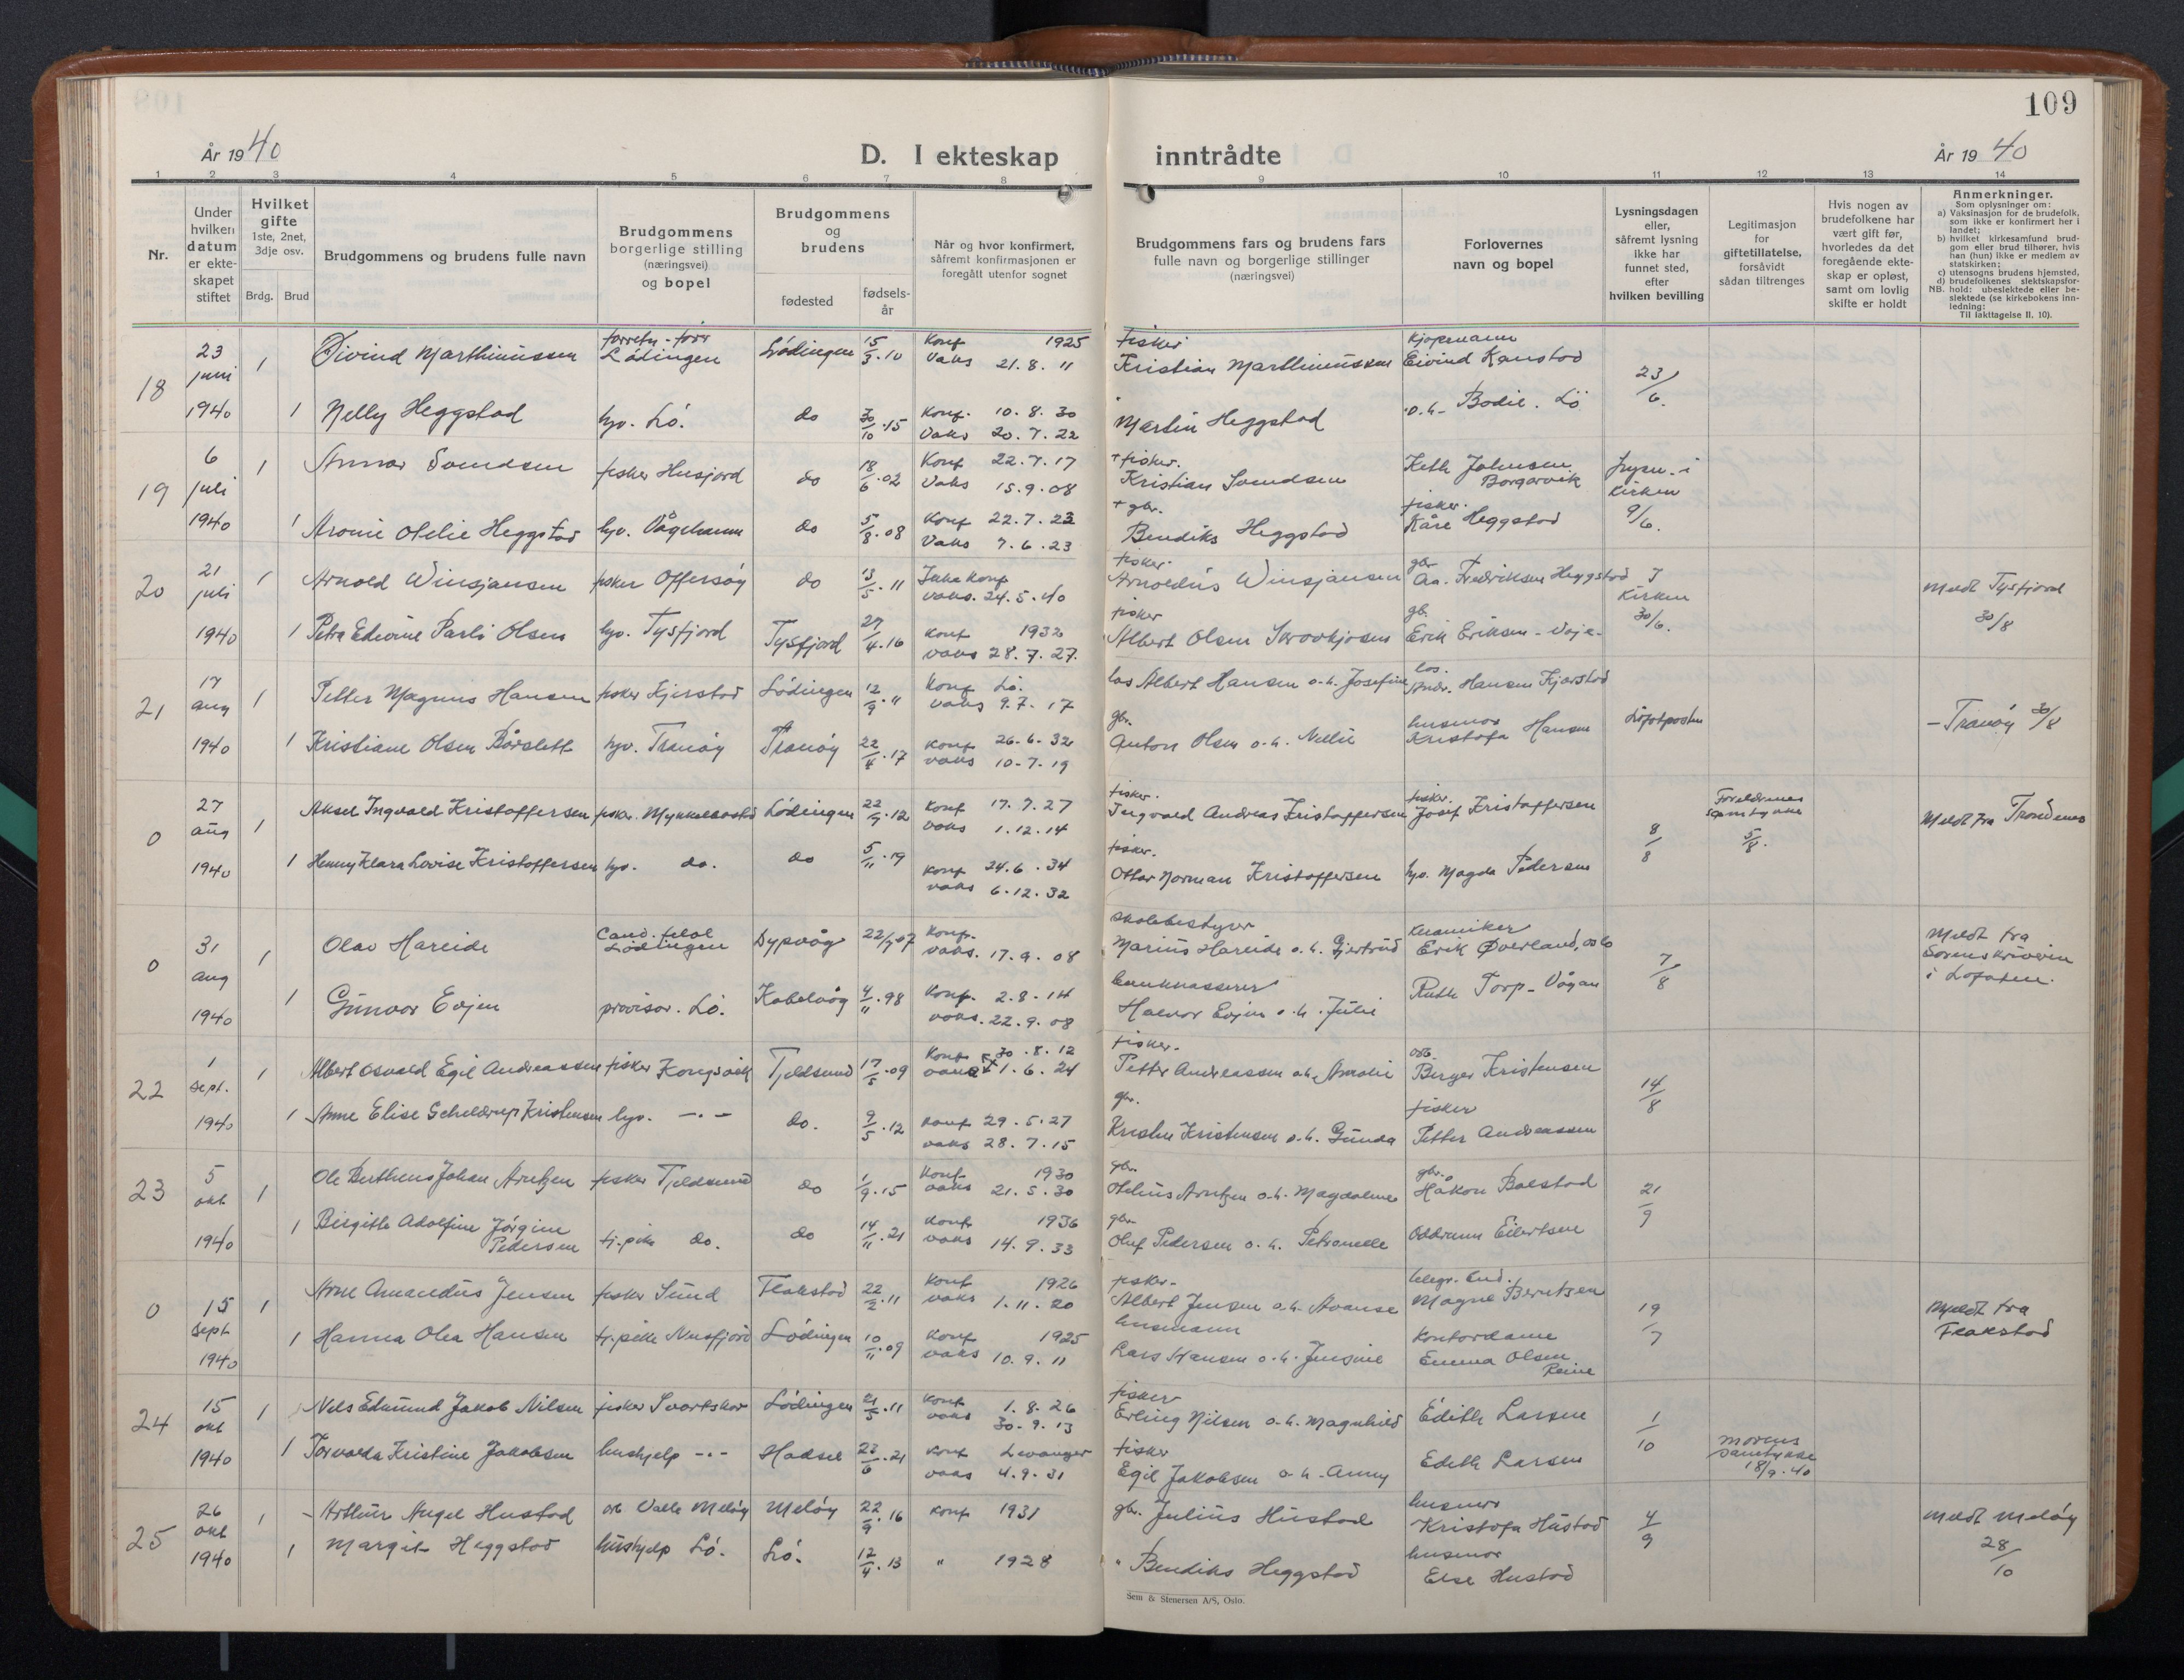 109
År 1940
D. I ekteskap inntrådte
År 1940
1 2 3 4 5 6 7 8 9 10 11 12 13 14
Nr.
Under hvilken datum er ekteskapet stiftet
Hvilket gifte 1ste, 2net, 3dje osv.
Brdg. Brud
Brudgommens og brudens fulle navn
Brudgommens borgerlige stilling (næringsvei) og bopel
Brudgommens og brudens
fødested
fødselsår
Når og hvor konfirmert, såfremt konfirmasjonen er foregått utenfor sognet
Brudgommens fars og brudens fars fulle navn og borgerlige stillinger (næringsvei)
Forlovernes navn og bopel
Lysningsdagen eller, såfremt lysning ikke har funnet sted, efter hvilken bevilling
Legitimasjon for giftetillatelse, forsåvidt sådan tiltrenges
Hvis nogen av brudefolkene har vært gift før, hvorledes da det foregående ekteskap er opløst, samt om lovlig skifte er holdt
Anmerkninger.
Som oplysninger om:
a) Vaksinasjon for de brudefolk, som ikke er konfirmert her i landet;
b) hvilket kirkesamfund brudgom eller brud tilhører, hvis han (hun) ikke er medlem av statskirken;
c) utensogns brudens hjemsted,
d) brudefolkenes slektskapsforhold: ubeslektede eller beslektede (se kirkebokens innledning:
NB.
Til iakttagelse II. 10).
18 23 juni 1940 1 Øivind Marthinussen Lødingen Lødingen 15/9.10 Konf 1925 Vaks 21.8.11 fisker Kristian Marthinussen Kjøpmann Eivind Kanstad 23/6.
1 Nelly Heggstad hjv. Lö. do 30/10.15 Konf. 10.8.30 Vaks 20.7.22 Martin Heggstad o.h. Bodil. Lö
19 6 juli 1940 1 Annar Svendsen fisker Husjord do 18/6.02 Konf 22.7.17 Vaks 15.9.08 + fisker. Kristian Svendsen Keth Johnsen Borgarvik kirken 9/6.
1 Aronie Otelie Heggstad hjv. Vågehamn do 5/8.08 Konf 22.7.23 Vaks 7.6.23 + gbr. Bendiks Heggstad fisker. Kåre Heggstad
20 21 juli 1940 1 Arnold Winsjansen fisker Offersøy do 13/5.11 Ikke Konf vaks. 24.5.40 fisker Arnoldus Winsjansen gbr Aa. Fredriksen Heggstad I Kirken 30/6. Meldt Tysfjord 30/8
1 Petra Edvine Parli Olsen hjv. Tysfjord Tysfjord 27/4.16 Konf 1932 vaks 28.7.27. fisker Albert Olsen gb. Erik Eriksen
21 17 aug 1940 1 Petter Magnus Hansen fisker Kjerstad Lødingen 12/9.11 Konf Lö. vaks 9.7.17 los Albert Hansen o.h. Josefine los. Andr. Hansen Kjærstad Lofotposten – Tranøy 30/8
1 Kristiane Olsen Bårslett hjv. Tranøy Tranøy 22/4.17 Konf 26.6.32 vaks 10.7.19 gbr. Anton Olsen o.h. Nellie husmor Kristofa Hansen
0 27 aug 1940 1 Aksel Ingvald Kristoffersen fisker. Lødingen 22/9.12 Konf 17.7.27 vaks 1.12.14 fisker. Ingvald Andreas Kristoffersen fisker. Josef Kristoffersen 8/8 Foreldrenes samtykke 5/8. Meldt fra Trondenes
1 Henny Klara Lovise Kristoffersen hjv. do. do 5/11.19 Konf 24.6.34 vaks 6.12.32 fisker. Ottar Norman Kristoffersen hjv. Magda Pedersen
0 31 aug 1940 1 Olav Hareide Cand. Lødingen Dypvåg 22/7 07 Konf. vaks. 17.9.08 skolebestyrer Marius Hareide o.h. Gjertrud Keramiker Erik Øverland, Oslo 7/8 Meldt fra Sorenskriveren i Lofoten.
1 Gunvor Evjen provisor. Lö. Kabelvåg 4/11.98 Konf. 2.8.14 vaks. 22.9.08 bankkasserer Halvor Evjen o.h. Julie Ruth Torp – Vågan
22 1 sept. 1940 1 Albert Osvald Egil Andreassen fisker Kongsvik Tjeldsund 17/5.09 Konf 30.8.12 vaks 1.6.24 fisker. Petter Andreassen o.h. Amalie Birger Kristensen 14/8
1 Anne Elise Scheldrup Kristensen hjv. –.– do. 9/5.12 Konf 29.5.27 vaks 28.7.15 gbr. Kristen Kristensen o.h. Gunda fisker Petter Andreassen
23 5 okt 1940 1 Ole Berthens Johan Arntzen fisker Tjeldsund do 1/9.15 Konf 1930 vaks 21.5.30 gbr. Otelius Arntzen o.h. Magdalene gbr. Håkon Balstad 21/9
1 Birgithe Adolfine Jörgine Pedersen tj.pike do. do 14/11.21 Konf 1936 vaks 14.9.33 gbr Oluf Pedersen o.h. Petranelle Oddrunn Eilertsen
0 15 sept 1940 1 Arne Amandus Jensen fisker Sund Flakstad 22/2.11 Konf 1926 vaks 1.11.20 fisker. Albert Jensen o.h. Avanse Magne Berntsen 19/7 Meldt fra Flakstad
1 Hanna Olea Hansen tj.pike Nusfjord Lødingen 10/11.09 Konf 1925 vaks 10.9.11 husmann Lars Hansen o.h. Jensine Kontordame Emma Olsen Reine
24 15 okt 1940 1 Nils Edmund Jakob Nilsen fisker Svartskar Lødingen 21/5.11 Konf 1.8.26 vaks 30.9.13 fisker Erling Nilsen o.h. Magnhild Edith Larsen 1/10
1 Torvalda Kristine Jakobsen hushjelp –.– Hadsel 23/6.21 Konf Levanger vaks 4.9.31 fisker Egil Jakobsen o.h. Anny Edith Larsen morens samtykke 18/9.40
25 26 okt 1940 1 Arthur Nugel Hustad arb Valla Meløy Meløy 22/9.16 Konf 1931 gbr. Julius Hustad husmor Kristofa Hustad 4/9 Meldt Meløy 28/10
1 Margit Heggstad hushjelp Lö. Lö. 12/4.13 " 1928 " Bendiks Heggstad husmor Else Hustad
Sem & Stenersen A/S, Oslo.